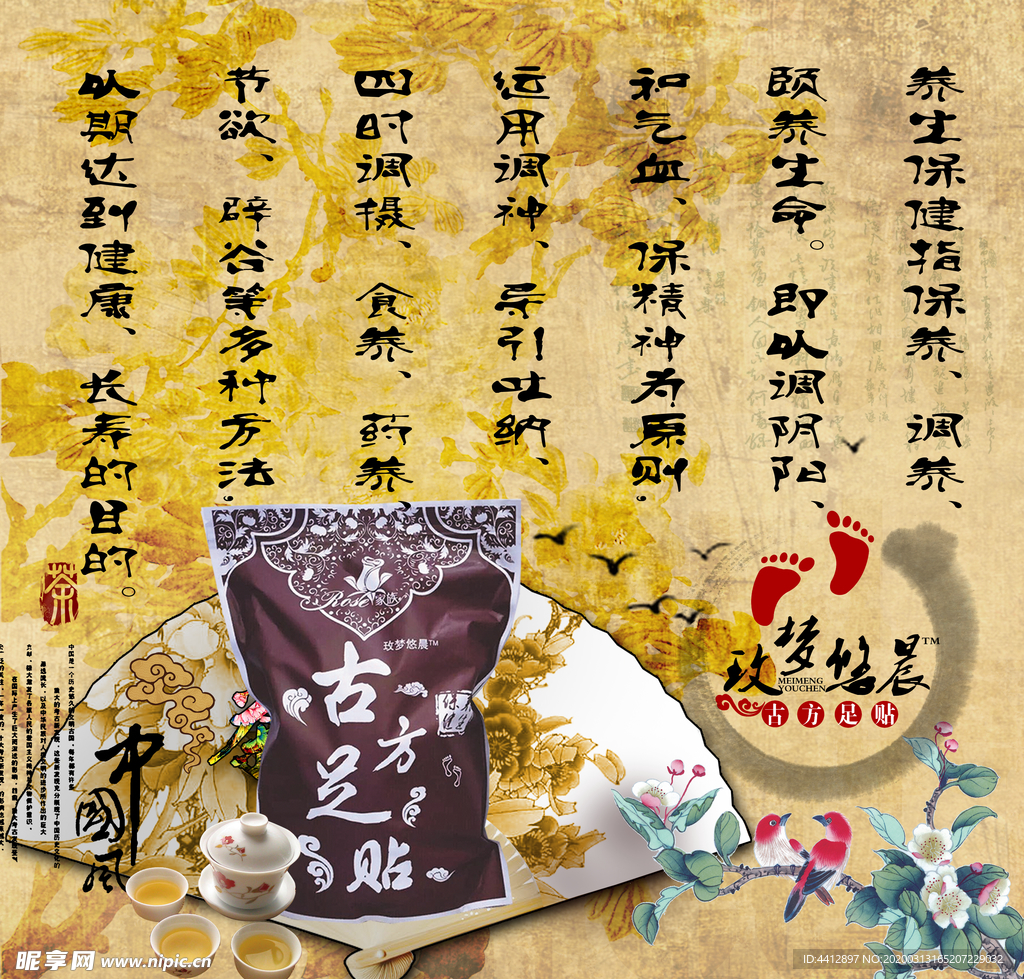 养生保健指保养、调养、
颐养生命。即以调阴阳、
和气血、保精神为原则.
运用调神、导引吐纳、
四时调摄、食养、药养、
节欲、辟谷等多种方法.
以期达到健康、长寿的目的。
茶
Rose家族
玫梦悠晨™
古方足贴
玫梦悠晨™
MEIMENG
YOUCHEN
古方足贴
中國风
中国是一个历史悠久的文明古国，每年都有许多
昵享网 www.nipic.cn
ID:4412897 NO:20200313165207229032